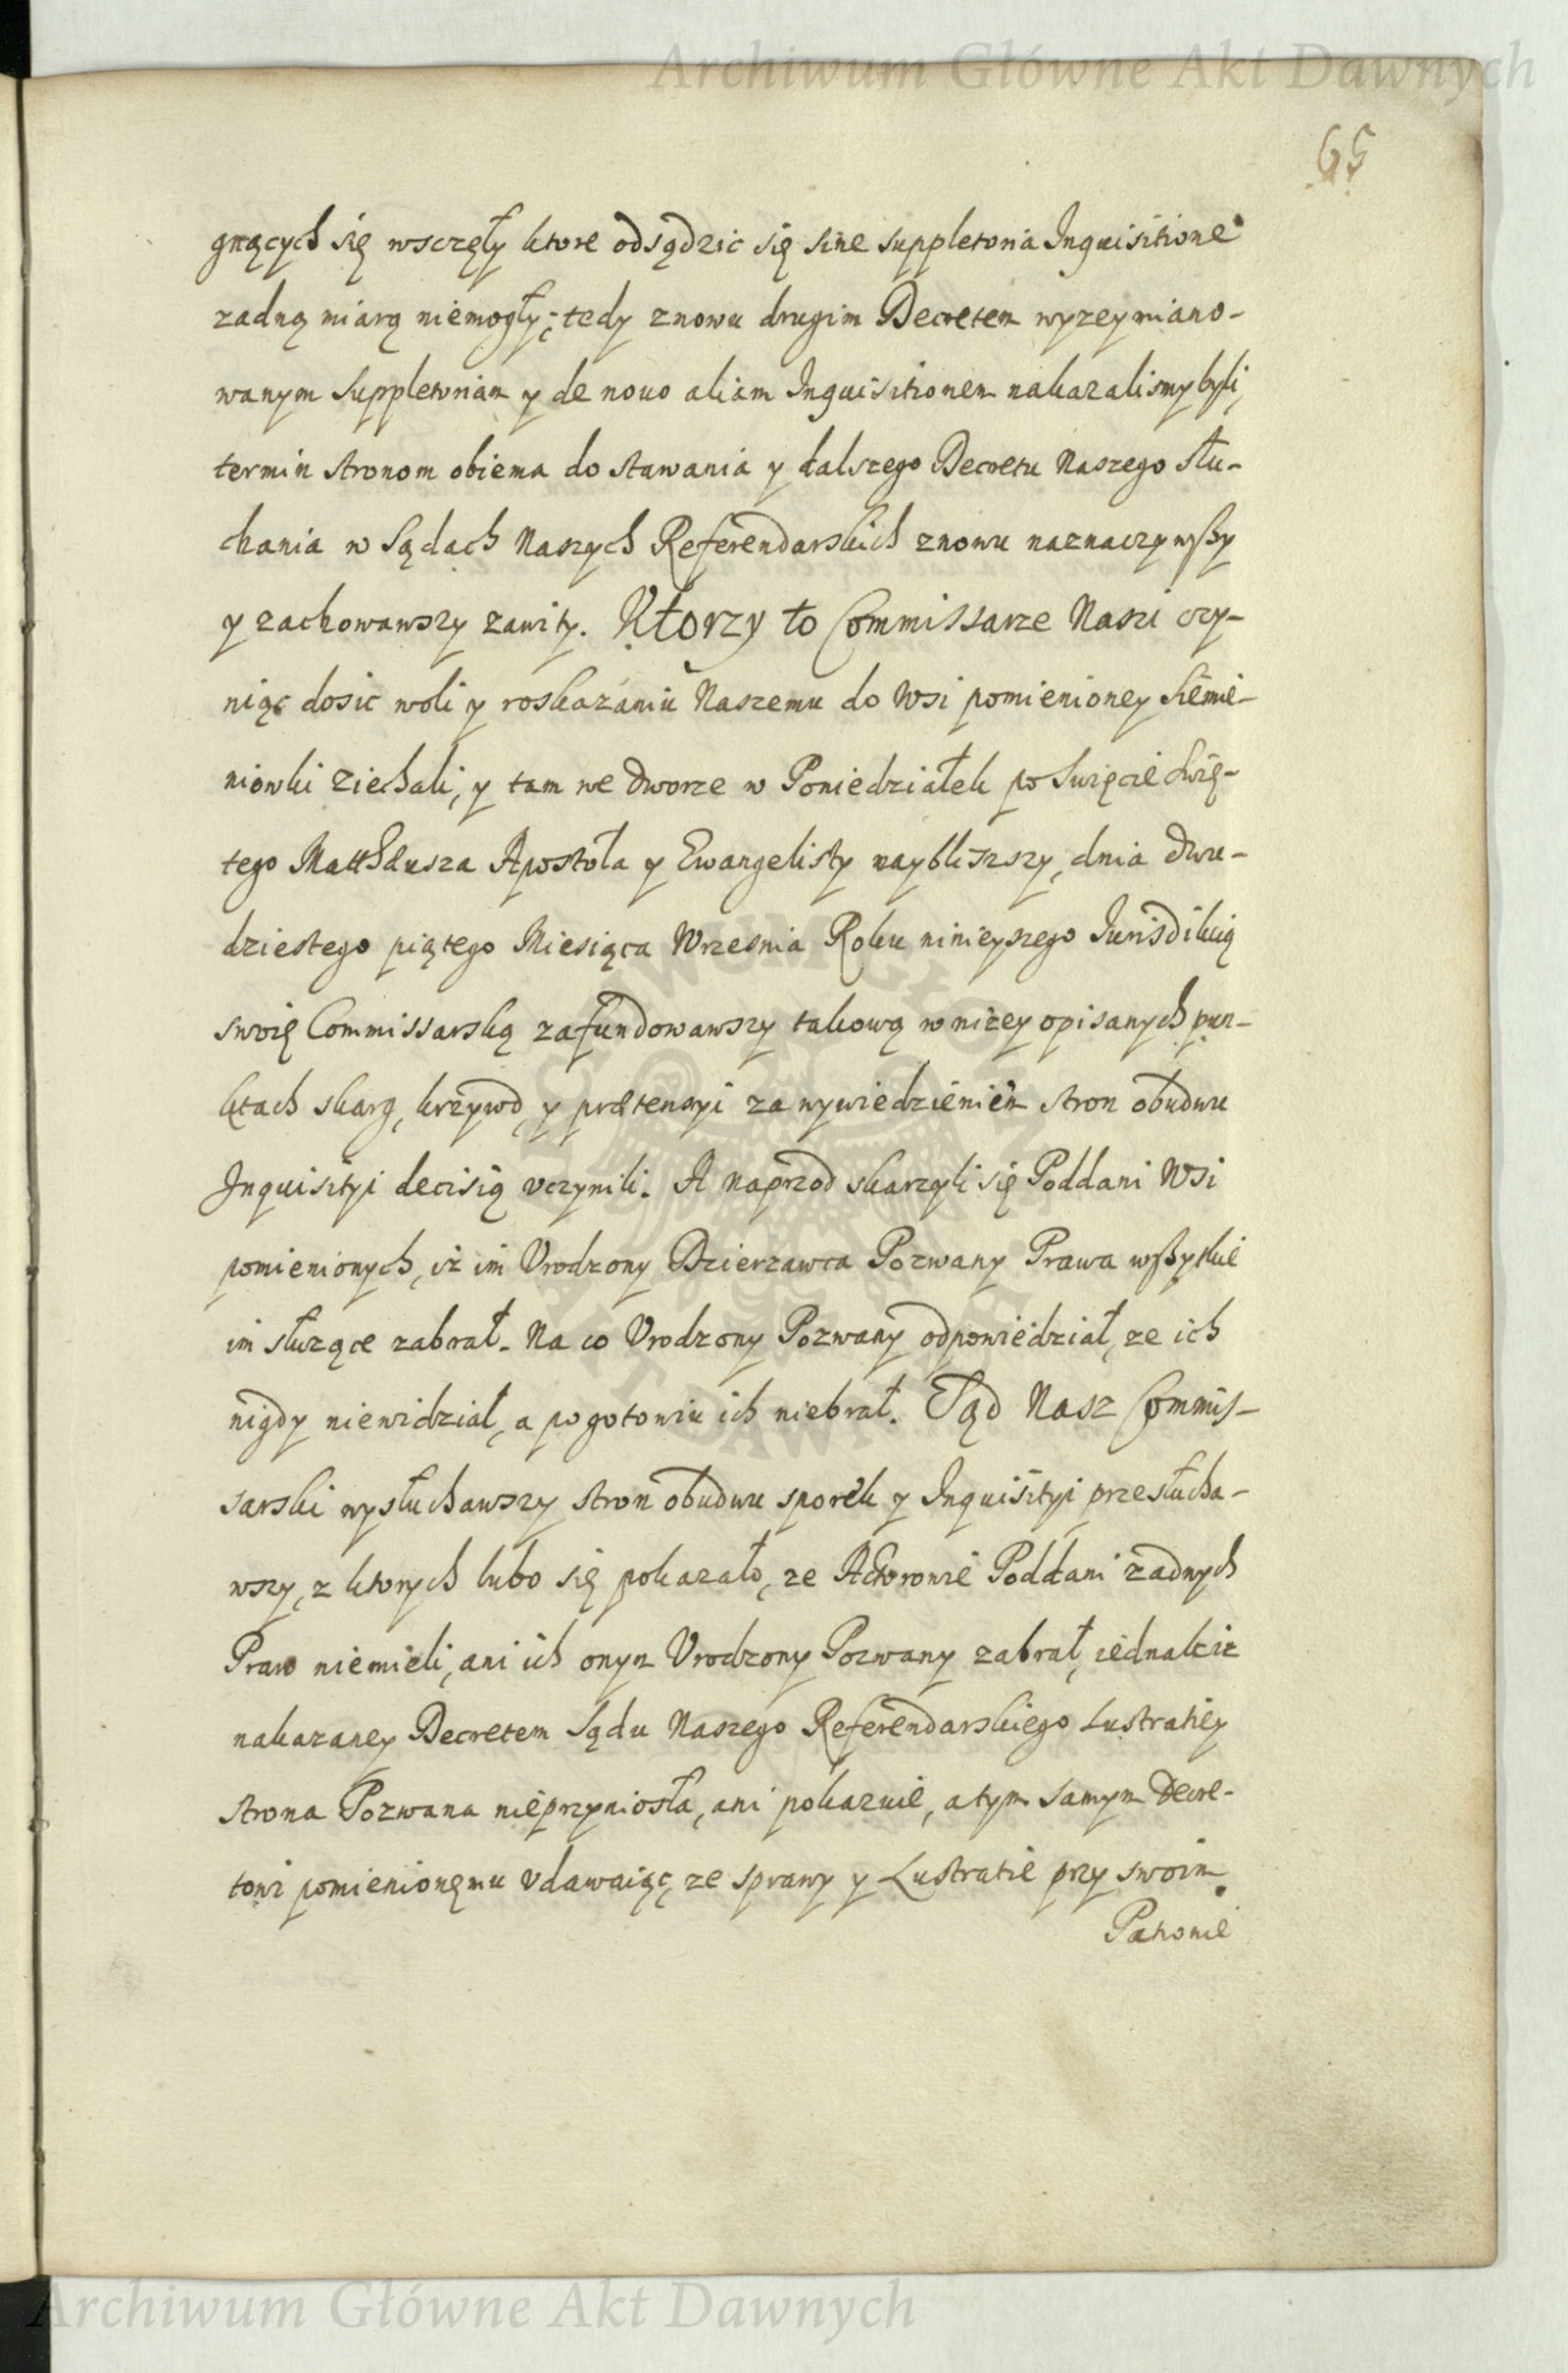 Archiwum Główne Akt Dawnych
65
gnących się wsczęły ktore odsądzic się sine suppletoria Inquisitione
zadną miarą niemogły; tedy znowu drugim Decretem wyzey miano-
wanym Suppletoriam y de nouo aliam Inquisitionem nakazalismy byli,
termin stronom obiema do stawania y dalszego Decretu Naszego słu-
chania w Sądach Naszych Referendarskich znowu naznaczywszy
y zachowawszy zawity. Ktorzy to Commissarze Nasi czy-
niąc dosic woli y roskazaniu Naszemu do Wsi pomienioney Siemie-
niowki ziechali, y tam we dworze w Poniedziałek po Swięcie Swię-
tego Matthæusza Apostoła y Ewangelisty naybliszszy, dnia dwu-
dziestego piątego Miesiąca Wrzesnia Roku ninieyszego Iurisdikcią
swoię Commissarską zafundowawszy takową w nizey opisanych pun-
ktach skarg, krzywd, y prætensyi za wywiedzieniem stron obudwu
Inquisityi decisią vczynili. A naprzod skarzyli się Poddani Wsi
pomienionych, iz im Vrodzony Dzierzawca Pozwany Prawa wszytkie
im słuzące zabrał. Na co Vrodzony Pozwany odpowiedział, ze ich
nigdy niewidział, a pogotowiu ich niebrał. Sąd Nasz Commis-
sarski wysłuchawszy stron obudwu sporek y Inquisityi przesłucha-
wszy, z ktorych lubo się pokazało, ze Actorowie Poddani zadnych
Praw niemieli, ani ich onym Vrodzony Pozwany zabrał, iednak iz
nakazaney Decretem Sądu Naszego Referendarskiego Lustratiey
strona Pozwana nieprzyniosła, ani pokazuie, a tym samym Decre-
towi pomienionemu vdawaiąc, ze sprawy y Lustratie przy swoim
Patronie
ARCHIWUM GŁÓWNE
AKT DAWNYCH
Archiwum Główne Akt Dawnych